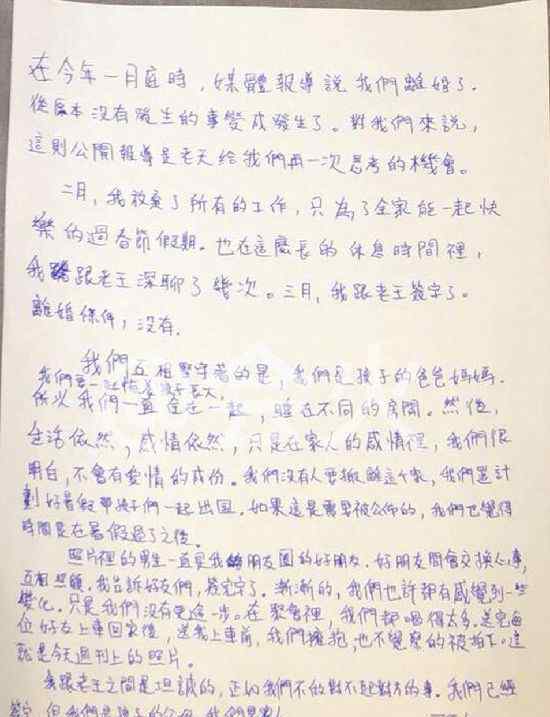 在今年一月底時,媒體報導說我們離婚了.
從原本沒有發生的事變成發生了。對我們來說,
這則公開報導是老天給我們再一次思考的機會。
二月,我放棄了所有的工作,只為了全家能一起快
樂的過春節假期.也在這麼長的休息時間裡,
我跟老王深聊了幾次。三月,我跟老王簽字了。
離婚條件,沒有.
我們互相堅守著的是,我們是孩子的爸爸媽媽.
我們要一起陪著孩子長大,
所以我們一直住在一起,睡在不同的房間。然後,
生活依然,感情依然,只是在家人的感情裡,我們很
明白,不會有愛情的成份。我們沒有人要搬離這個家,我們還計
劃好暑假帶孩子們一起出國.如果這是需要被公佈的,我們也覺得
時間是在暑假過了之後。
照片裡的男生一直是我朋友圈的好朋友.好朋友間會交換心事,
互相照顧,我告訴好友們,簽完字了。漸漸的,我們也許都有感覺到一些
變化.只是我們沒有更進一步。在聚會裡,我們都喝得太多.送完每
位好友上車回家後,送我上車前,我們擁抱,也不覺察的被拍了.這
就是今天週刊上的照片。
我跟老王之間是坦誠的,正如我們不做對不起對方的事.我們已經
簽字,但我們是孩子的父母,我們是家人